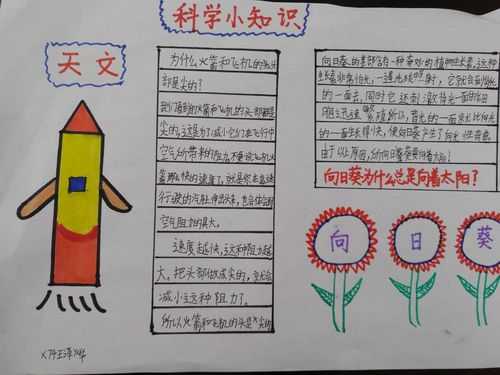 科学小知识
天文
为什么火箭和飞机的头
都是尖的？
我们看到的火箭和飞机的头都是
尖的，这是为了减小它们在飞行中
空气所带来的阻力，不要说飞机火
箭那么快的速度了，就是你在高速
行驶的汽车伸出头来，也会体会到
空气阻力的具大。
速度越快，这种阻力越
大，把头部做成尖的，
减小这种阻力了。
所以火箭和飞机的头是尖的
向日葵的茎部含有一种奇妙的植物生长素，这种
生长素非常怕光，一遇光线照射，它就会到背光
的一面去，同时它还刺激背光一面的细
胞迅速繁殖所以，背光的一面就比向光
的一面生长得快，使向日葵产生了向光性弯曲
由于以上原因，所向日葵要向着太阳！
向日葵为什么总是向着太阳？
向 日 葵